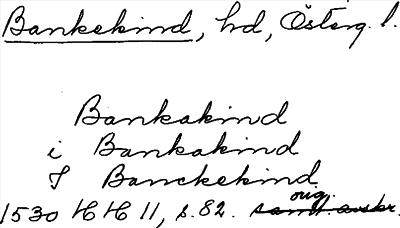 Bankekind, hd, Österg. l.
Bankakind
i Bankakind
I Banckekind
orig.
1530 HH 11, s. 82. samt. avskr.